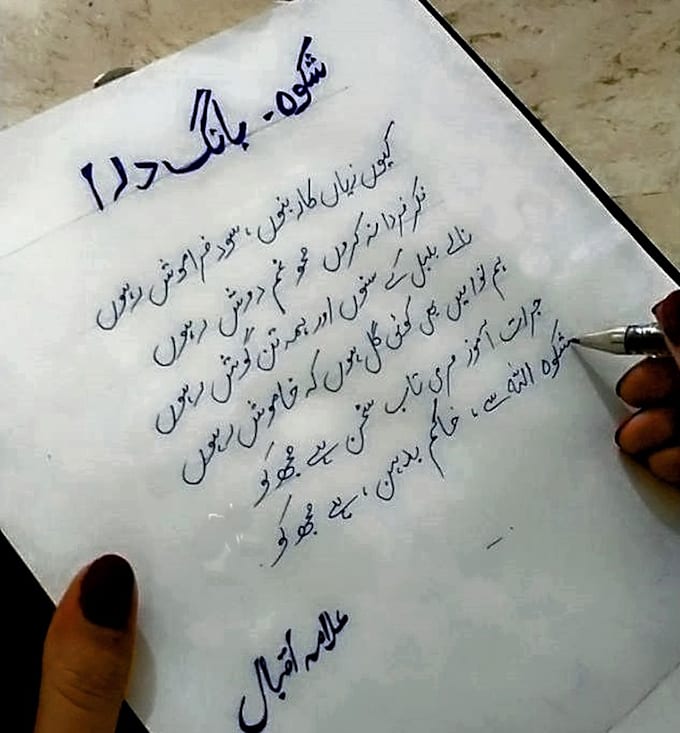 شکوہ - بانگ درا
کیوں زیاں کار بنوں، سود فراموش رہوں
فکر فردا نہ کروں محو غم دوش رہوں
نالے بلبل کے سنوں اور ہمہ تن گوش رہوں
ہم نوا میں بھی کوئی گل ہوں کہ خاموش رہوں
جرات آموز مری تاب سخن ہے مجھ کو
شکوہ اللہ سے، خاکم بدہن، ہے مجھ کو
علامہ اقبال